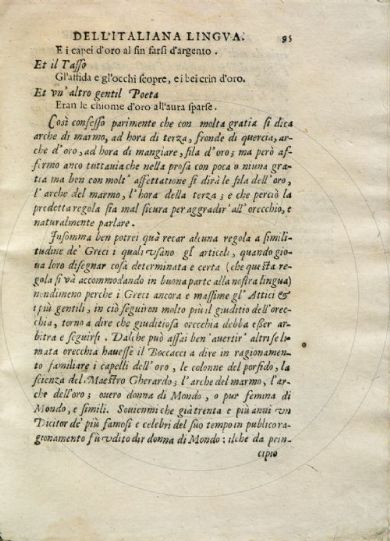 DELL'ITALIANA LINGVA. 85
E i capei d'oro al fin farsi d'argento.
Et il Tasso
Gl'affida e gl'occhi scopre, e i bei crin d'oro.
Et vn' altro gentil Poeta
Eran le chiome d'oro all'aura sparse.
Così confesso parimente che con molta gratia si dica
arche di marmo, ad hora di terza, fronde di quercia, ar-
che d'oro, ad hora di mangiare, fila d'oro; ma però af-
fermo anco tuttauia che nella prosa con poca o niuna gra-
tia ma ben con molt' affettatione si dirà le fila dell'oro,
l'arche del marmo, l'hora della terza; e che perciò la
predetta regola sia mal sicura per aggradir' all'orecchio, e
naturalmente parlare.
Insomma ben potrei quà recar alcuna regola a simili-
tudine de' Greci i quali vsano gl' articoli, quando gio-
ua loro disegnar cosa determinata e certa (che questa re-
gola si và accommodando in buona parte alla nostra lingua)
nondimeno perche i Greci ancora e massime gl' Attici &
i più gentili, in ciò seguiron molto più il giuditio dell'orec-
chia, torno a dire che giuditiosa orecchia debba esser ar-
bitra e seguirsi. Dalche può assai ben' auertir' altri se li-
mata orecchia hauesse il Boccacci a dire in ragionamen-
to familiare i capelli dell' oro, le colonne del porfido, la
scienza del Maestro Gherardo; l'arche del marmo, l'ar-
che dell'oro; ouero donna di Mondo, o pur femina di
Mondo, e simili. Souiemmi che già trenta e più anni vn
Dicitor de' più famosi e celebri del suo tempo in publico ra-
gionamento fù vdito dir donna di Mondo; ilche da prin-
cipio